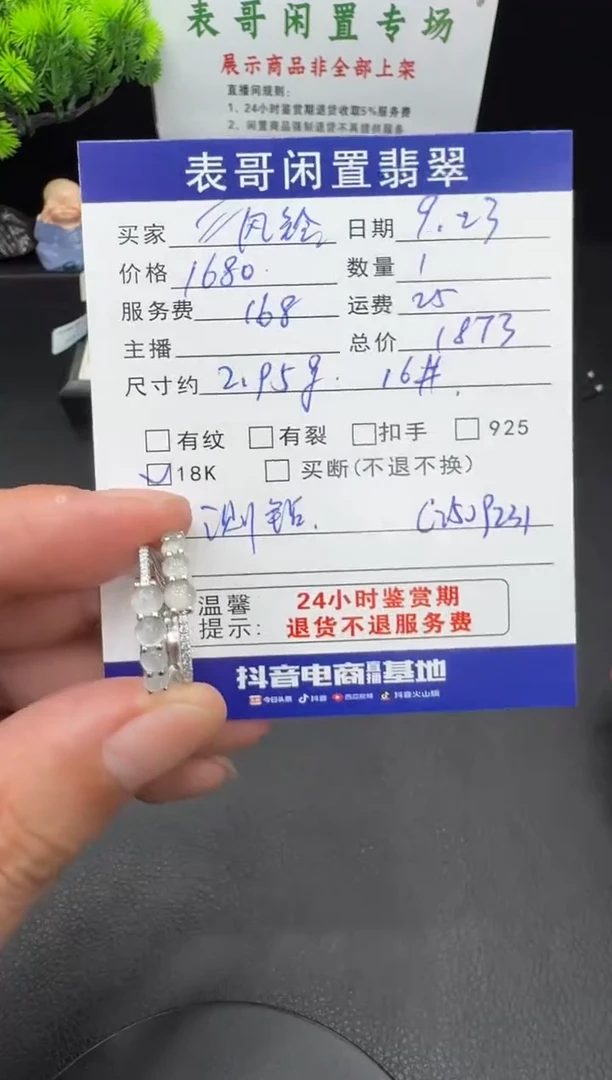 表哥闲置专场
展示商品非全部上架
直播间规则:
1、24小时鉴赏期退货收取5%服务费
2、闲置商品强制退货不再提供服务
表哥闲置翡翠
买家 风铃 日期 9.23
价格 1680 数量 1
服务费 168 运费 25
主播 总价 1873
尺寸约 2.95g 16#
有纹 有裂 扣手 925
18K 买断(不退不换)
测钻
温馨 24小时鉴赏期
提示: 退货不退服务费
抖音电商直播基地
今日头条 抖音 西瓜视频 抖音火山版